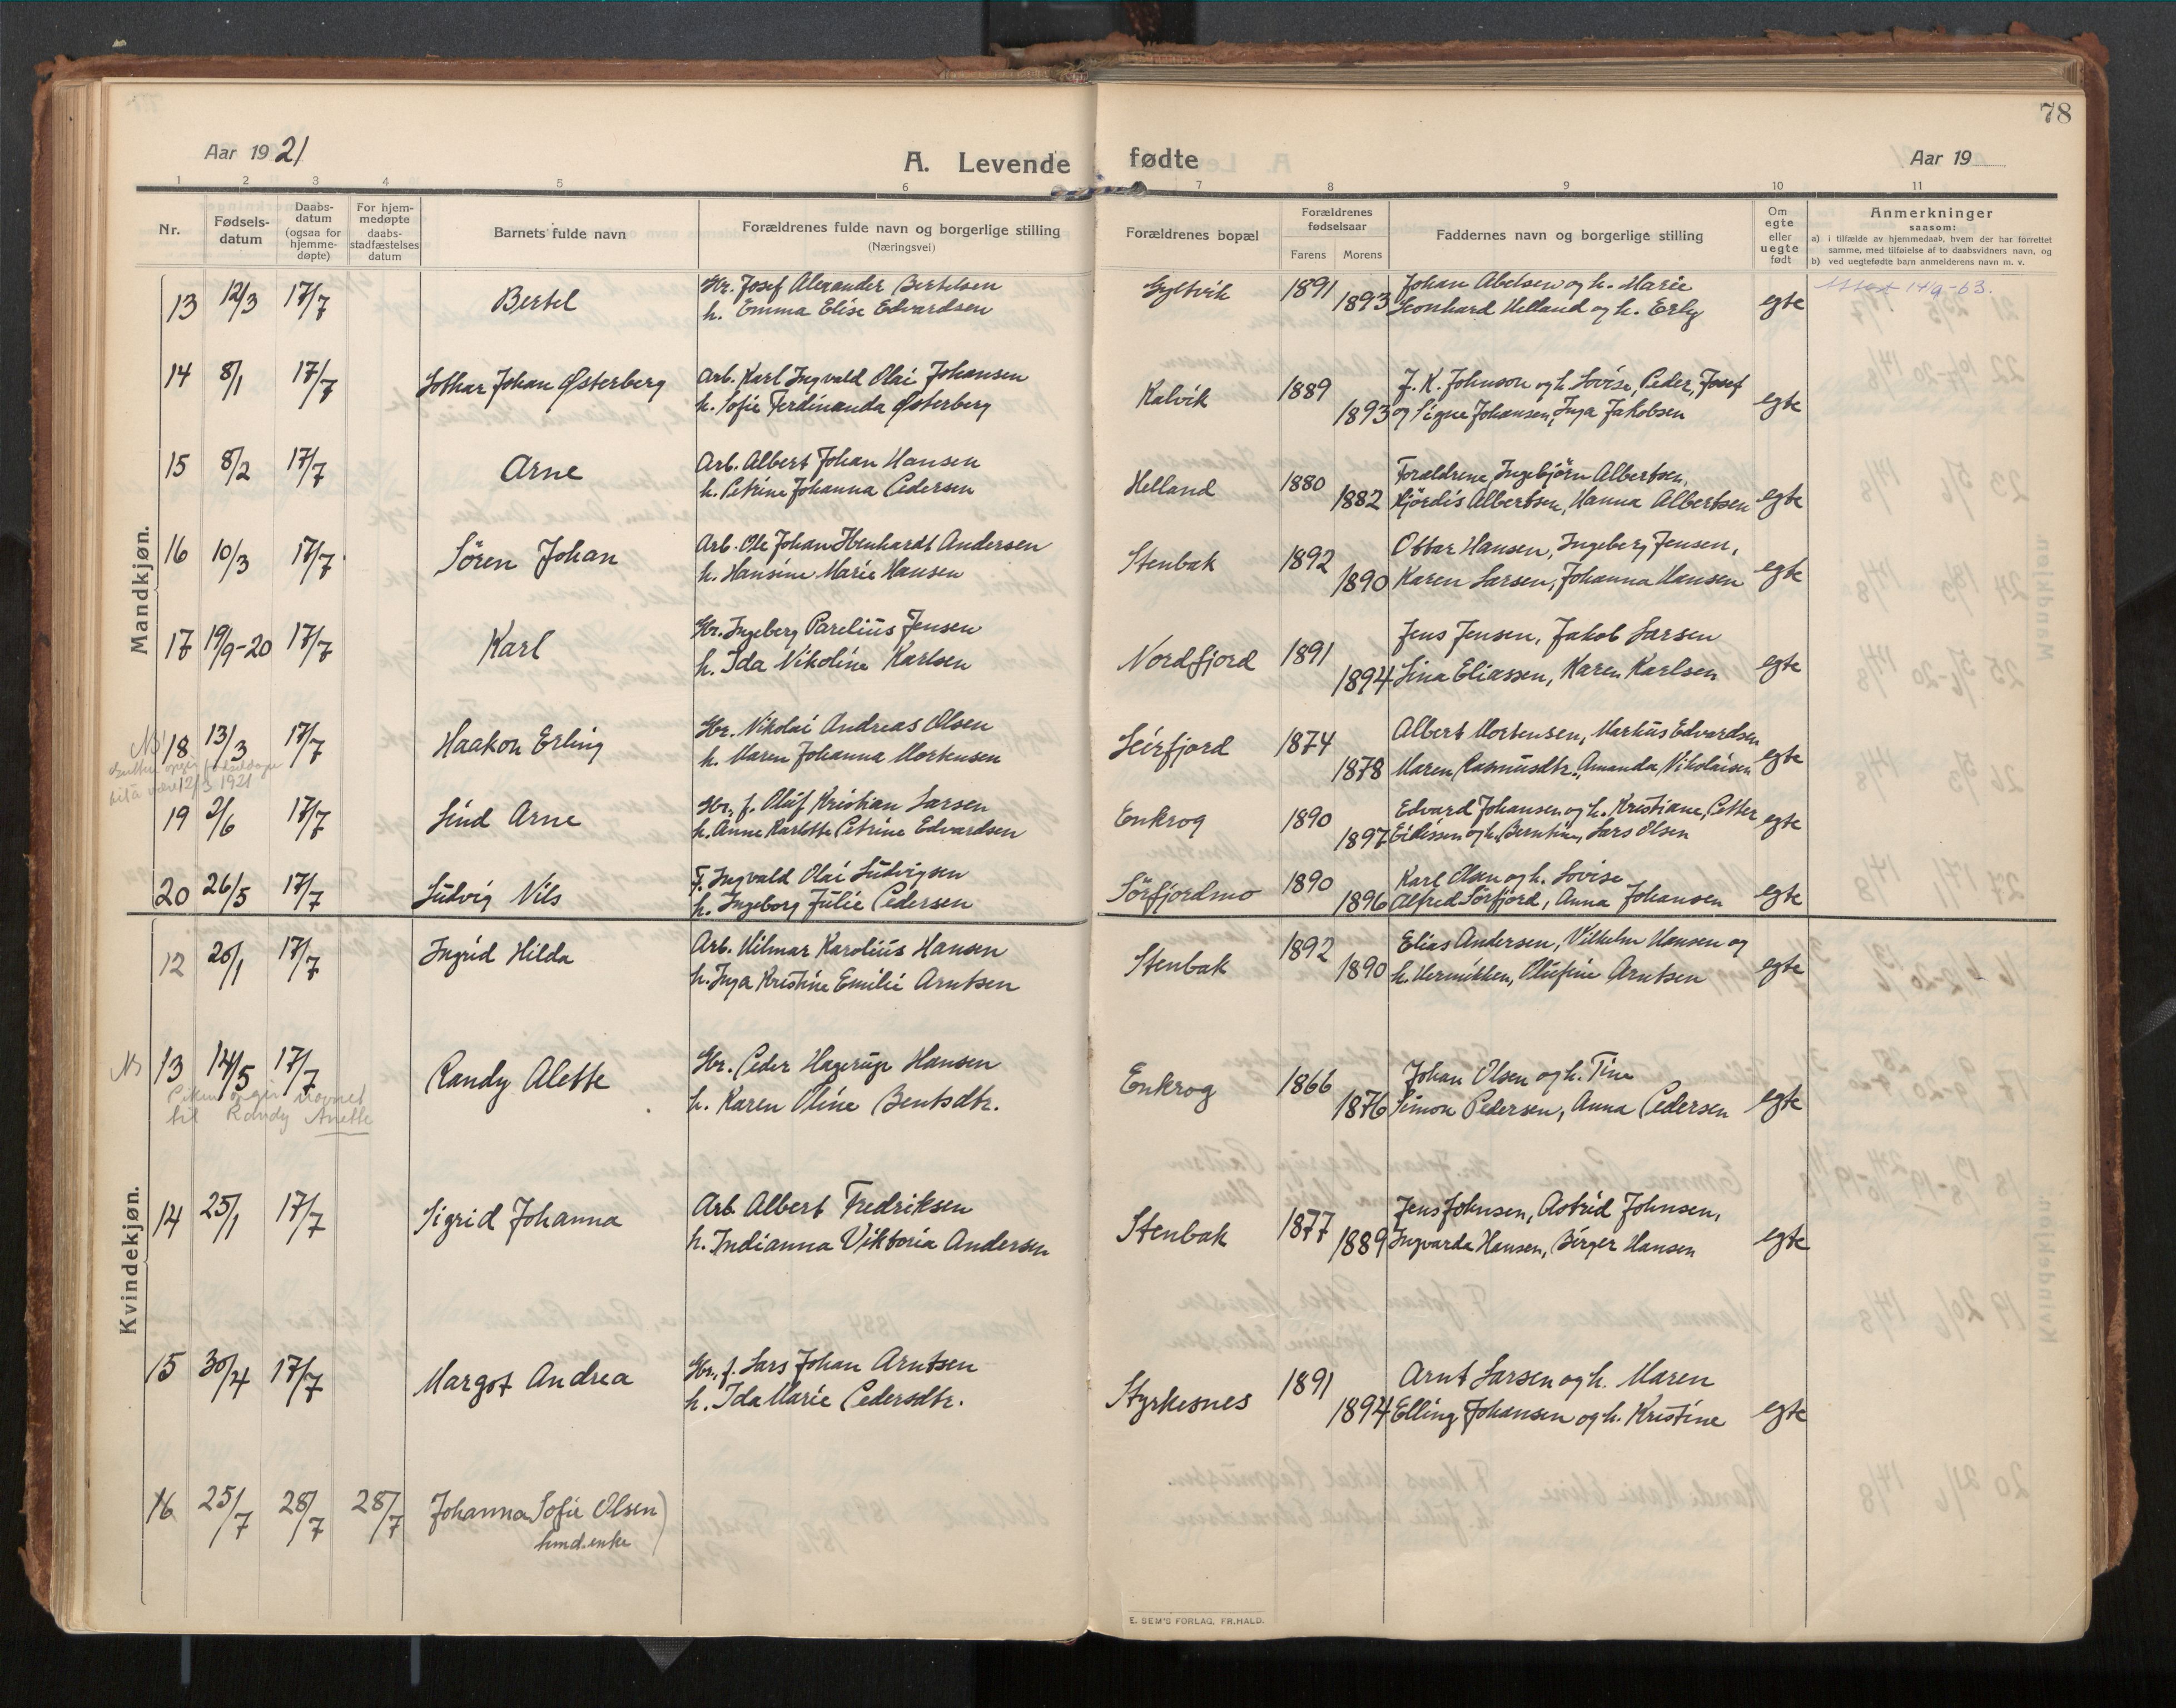 78
Aar 1921
A. Levende fødte
Aar 19
1 2 3 4 5 6 7 8 9 10 11
Nr.
Fødsels-
datum
Daabs-
datum
(ogsaa for
hjemme-
døpte)
For hjem-
medøpte
daabs-
stadfæstelses
datum
Barnets fulde navn
Forældrenes fulde navn og borgerlige stilling
(Næringsvei)
Forældrenes bopæl
Forældrenes
fødselsaar
Farens Morens
Faddernes navn og borgerlige stilling
Om
egte
eller
uegte
født
Anmerkninger
saasom:
a) i tilfælde av hjemmedaab, hvem der har forrettet
samme, med tilføielse af to daabsvidners navn, og
b) ved uegtefødte barn anmelderens navn m. v.
Mandkjøn.
13 12/3 17/7 Bertel Gbr. Josef Alexander Bertelsen Gyltvik 1891 Johan Abelsen og h. Marie 14/9-63.
h. Emma Elise Edvardsen 1893 Leonhard Helland og h. Erly egte
14 8/1 17/7 Lothar Johan Østerberg Arb. Karl Ingvald Olai Johansen Kalvik 1889 J. K. Johnson og h. Lovise, Peder, Josef
h. Sofie Ferdinanda Østerberg 1893 og Signe Johansen, Inga Jakobsen egte
15 8/2 17/7 Arne Arb. Albert Johan Hansen Helland 1880 Forældrene, Ingebjörn Albertsen,
h. Petrine Johanna Pedersen 1882 Hjördis Albertsen, Hanna Albertsen egte
16 10/3 17/7. Sören Johan Arb. Ole Johan Ibenhardt Andersen Stenbak 1892 Ottar Hansen, Ingeberg Jensen,
h. Hansine Marie Hansen 1890 Karen Larsen, Johanna Hansen egte
17 19/9-20 17/7 Karl Gbr. Ingeberg Parelius Jensen Nordfjord 1891 Jens Jensen, Jakob Larsen
h. Ida Nikoline Karlsen 1894 Lina Eliassen, Karen Karlsen egte
18 13/3 17/7 Haakon Erling Gbr. Nikolai Andreas Olsen Leirfjord 1874 Albert Mortensen, Markus Edvardsen
h. Maren Johanna Mortensen 1878 Maren Rasmusdtr., Amanda Nikolaisen egte
opgir fødselsdagen
til å være 12/3 1921
19 2/6 17/7 Lind Arne Gbr., f. Oluf Kristian Larsen Enkrog 1890 Edvard Johansen og h. Kristiane, Petter
h. Anne Karlotte Petrine Edvardsen 1897 Eidissen og h. Berntine, Lars Olsen egte
20 26/5 17/7 Ludvig Nils F. Ingvald Olai Ludvigsen Sörfjordmo 1890 Karl Olsen og h. Lovise
h. Ingeborg Julie Pedersen 1896 Alfred Sörfjord, Anna Johansen egte
Kvindekjøn.
12 20/1 17/7 Ingrid Hilda Arb. Hilmar Karolius Hansen Stenbak 1892 Elias Andersen, Vilhelm Hansen og
h. Inga Kristine Emilie Arntsen 1890 h. Hermikken, Olufine Arntsen egte
13 14/5 17/7 Randy Alette Gbr. Peder Hagerup Hansen Enkrog 1866 Johan Olsen og h. Tine
h. Karen Oline Bentsdtr. 1876 Simon Pedersen, Anna Pedersen egte
Piken opgir navnet
til Randy Anette
14 25/1 17/7 Sigrid Johanna Arb. Albert Fredriksen Stenbak 1877 Jens Johnsen, Astrid Johnsen,
h. Indianna Viktoria Andersen 1889 Ingvarda Hansen, Birger Hansen egte
15 30/4 17/7 Margot Andrea Gbr., f. Lars Johan Arntsen Styrkesnes 1891 Arnt Larsen og h. Maren
h. Ida Marie Pedersdtr. 1894 Elling Johansen og h. Kristine egte
16 25/7 28/7 28/7 Johanna Sofie Olsen)
E. SEM'S FORLAG, FR.HALD.